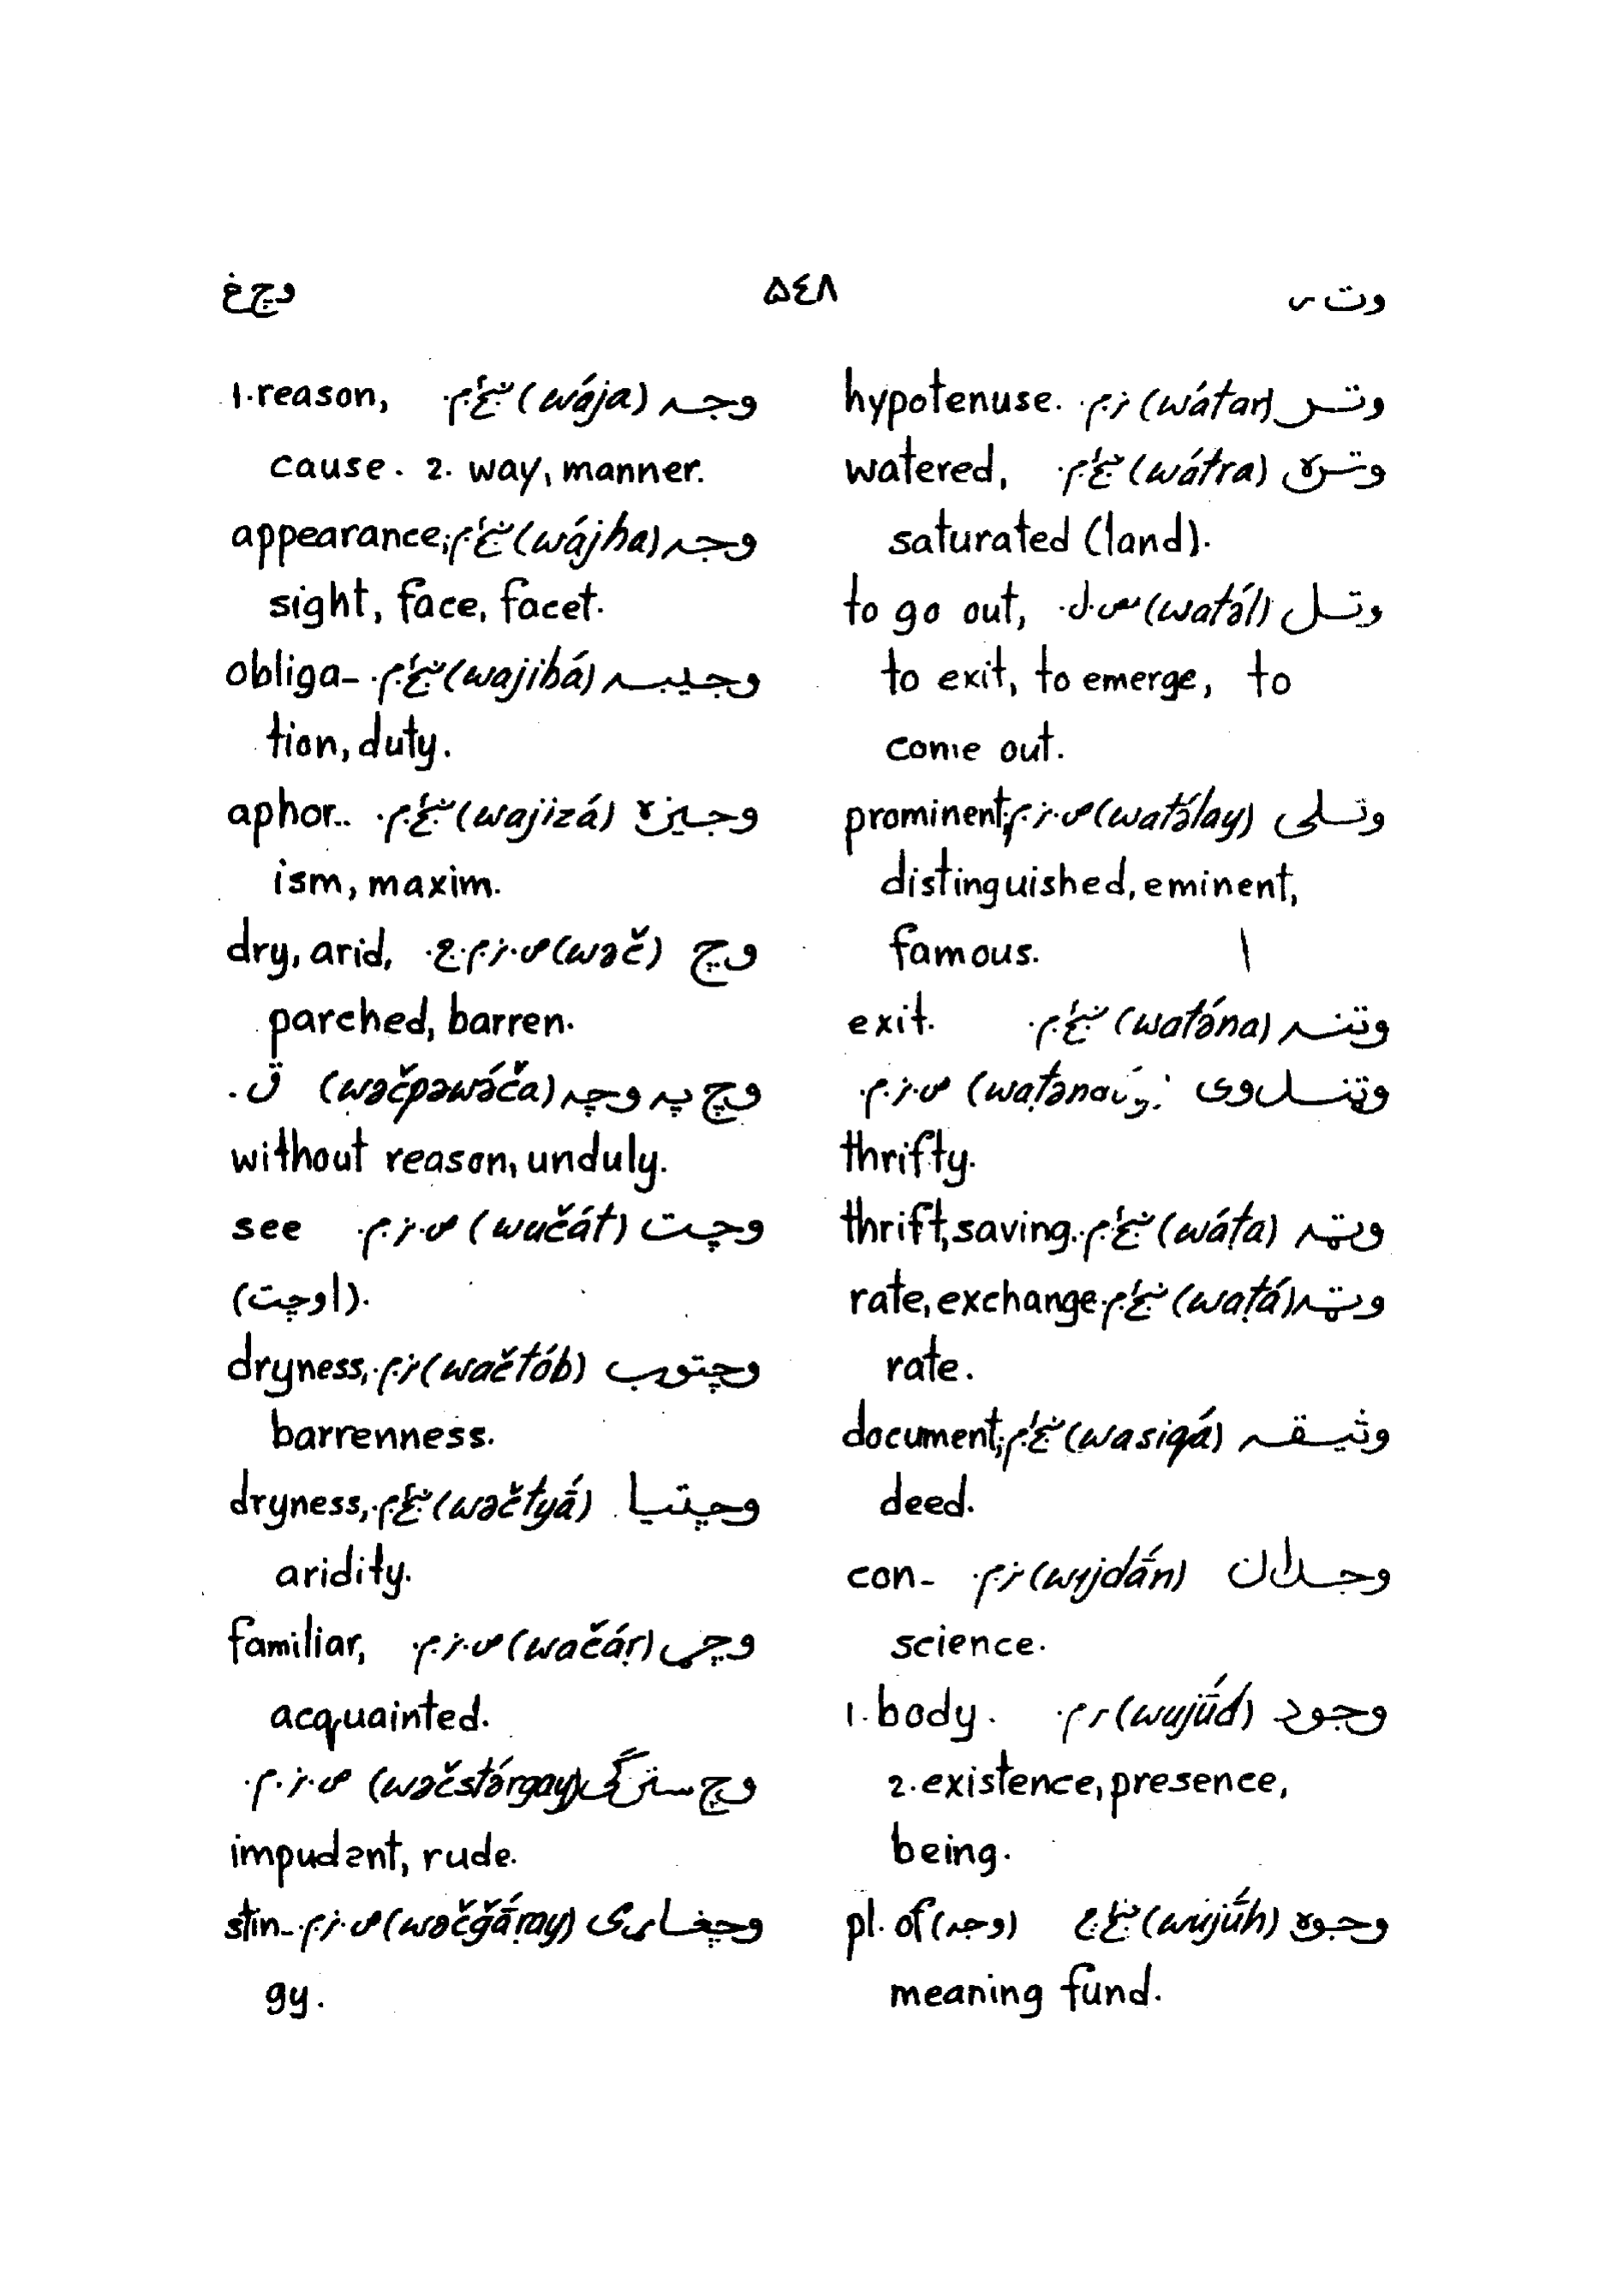 وت ر
۵٤۸
وچ غ
وتر (wátar) ن.م. hypotenuse.
وتره (wátra) ښځ.م. watered,
saturated (land).
وتل (watə́l) مص.ل. to go out,
to exit, to emerge, to
come out.
وتلی (watə́lay) ص.ن.م. prominent,
distinguished, eminent,
famous.
وتنه (watə́na) ښځ.م. exit.
ص.ن.م.
thrifty.
وټه (wáṭa) ښځ.م. thrift, saving.
وټه (waṭá) ښځ.م. rate, exchange
rate.
وثيقه (wasiqá) ښځ.م. document,
deed.
وجدان (wɪjdā́n) ن.م. con-
science.
وجود (wujū́d) ن.م. 1. body.
2. existence, presence,
being.
وجوه (wujū́h) ښځ.ج pl. of (وجه)
meaning fund.
وجه (wája) ښځ.م. 1. reason,
cause. 2. way, manner.
وجه (wájha) ښځ.م. appearance,
sight, face, facet.
وجيبه (wajibá) ښځ.م. obliga-
tion, duty.
وجيزه (wajizá) ښځ.م. aphor-
ism, maxim.
وچ (wəč) ص.ن.م.ج. dry, arid,
parched, barren.
وچ په وچه (wəčpəwə́ča) ق.
without reason, unduly.
وچت (wučát) ص.ن.م. see
(اوچت).
وچتوب (wačtób) ن.م. dryness,
barrenness.
وچتيا (wəčtyā́) ښځ.م. dryness,
aridity.
وچړ (wačáṛ) ص.ن.م. familiar,
acquainted.
وچ سترګی (wəčstə́rgay) ص.ن.م.
impudent, rude.
وچغاړی (wəčğā́ṛay) ص.ن.م. stin-
gy.